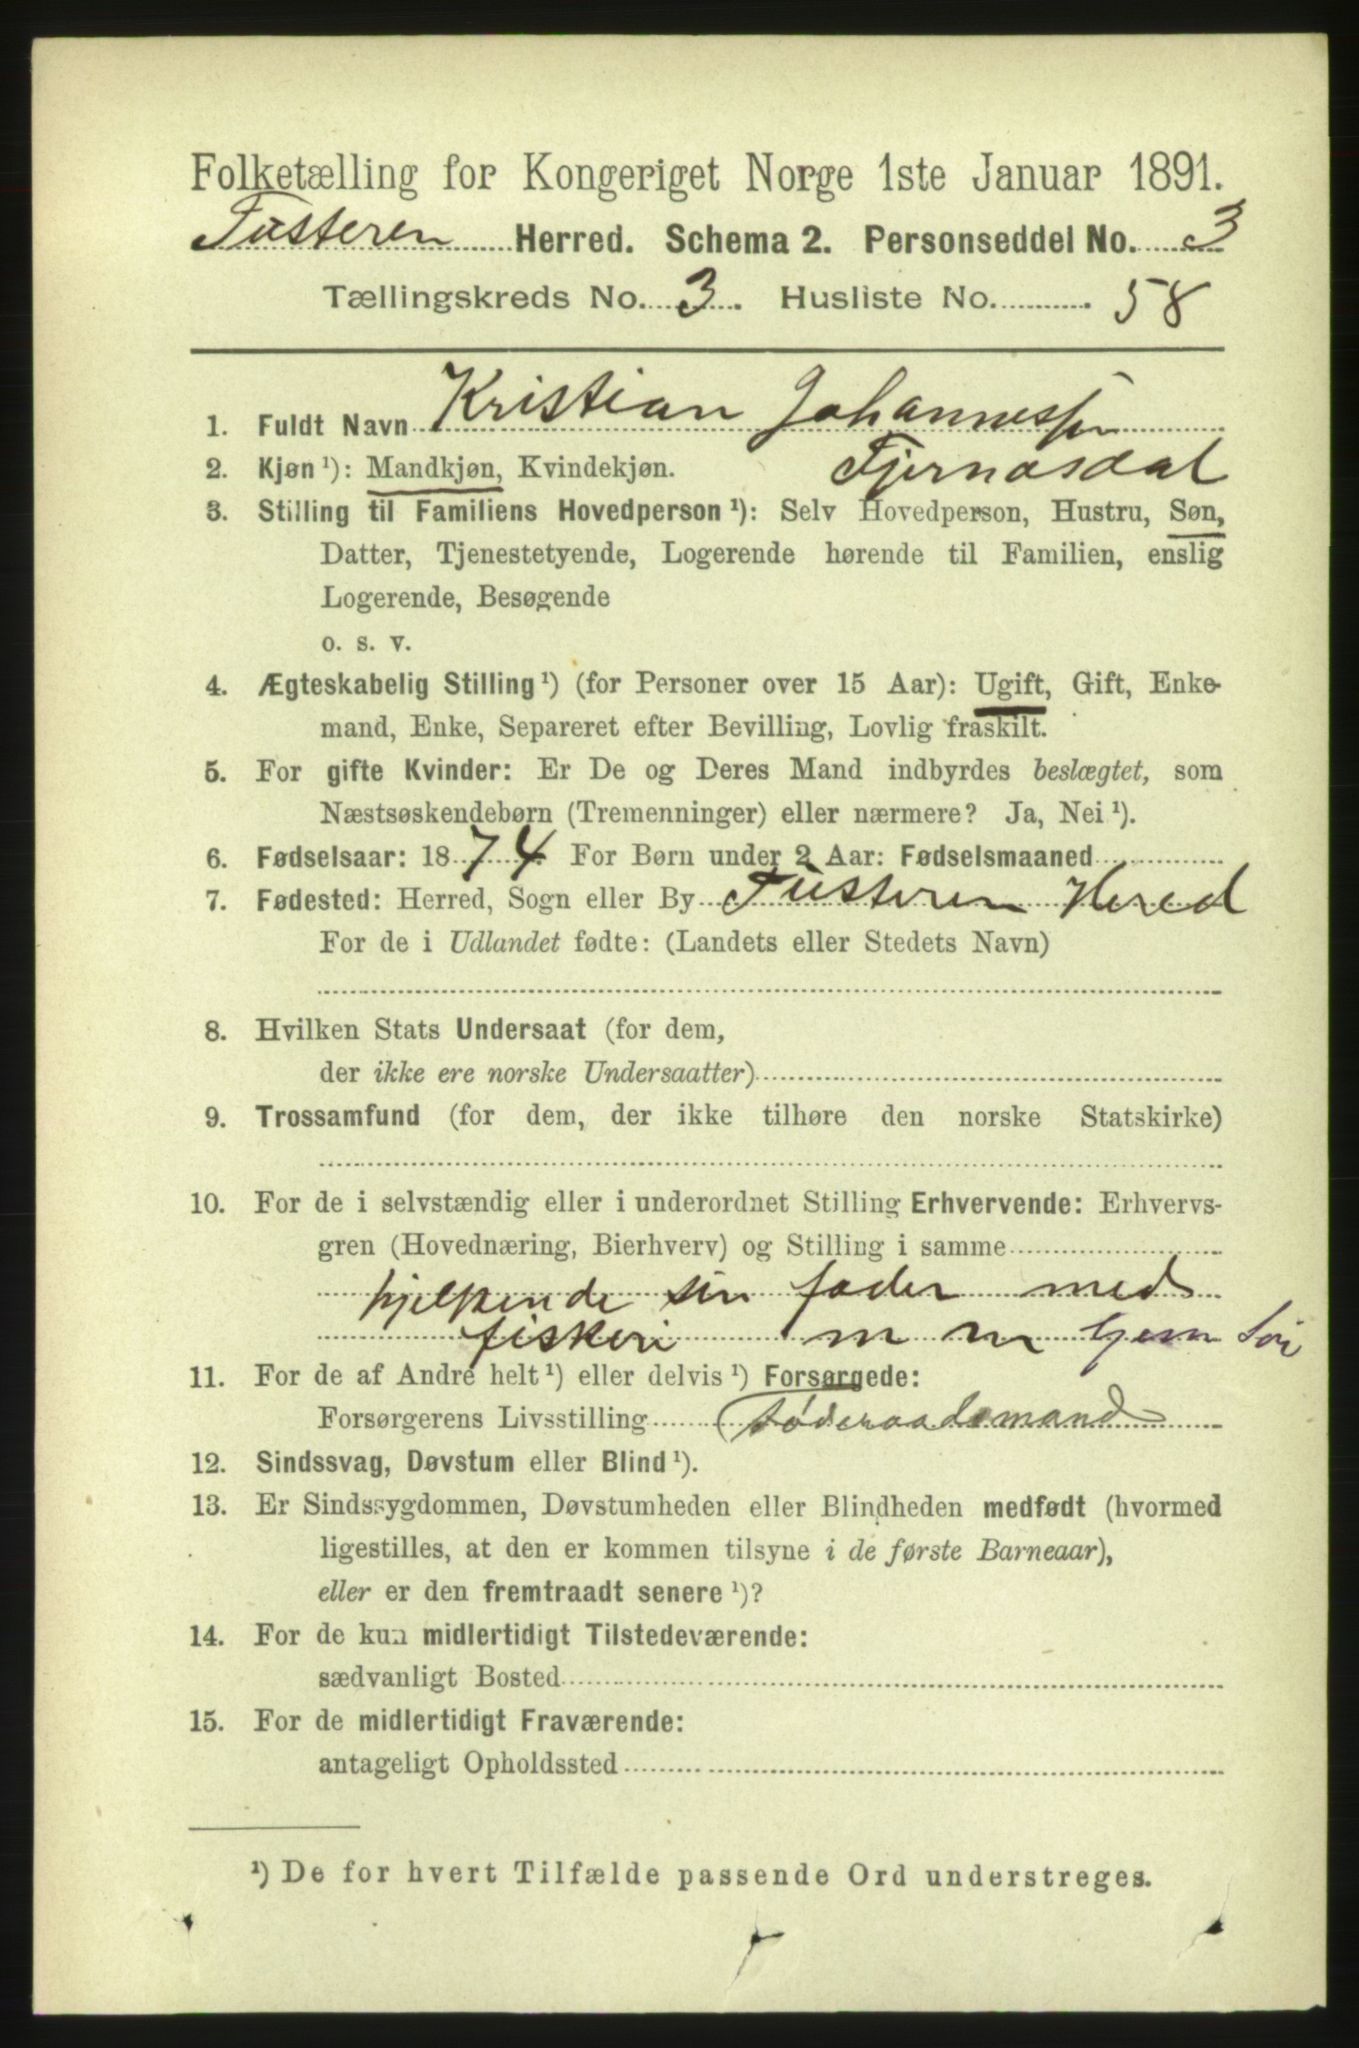 Folketælling for Kongeriget Norge 1ste Januar 1891.
Tusteren Herred. Schema 2. Personseddel No. 3
Tællingskreds No. 3. Husliste No. 58
1. Fuldt Navn Kristian Johannessen
2. Kjøn ¹): Mandkjøn, Kvindekjøn. Fjernasdal
3. Stilling til Familiens Hovedperson ¹): Selv Hovedperson, Hustru, Søn,
Datter, Tjenestetyende, Logerende hørende til Familien, enslig
Logerende, Besøgende
o. s. v.
4. Ægteskabelig Stilling ¹) (for Personer over 15 Aar): Ugift, Gift, Enke-
mand, Enke, Separeret efter Bevilling, Lovlig fraskilt.
5. For gifte Kvinder: Er De og Deres Mand indbyrdes beslægtet, som
Næstsøskendebørn (Tremenninger) eller nærmere? Ja, Nei ¹).
6. Fødselsaar: 1874. For Børn under 2 Aar: Fødselsmaaned
7. Fødested: Herred, Sogn eller By Tusteren Hered
For de i Udlandet fødte: (Landets eller Stedets Navn)
8. Hvilken Stats Undersaat (for dem,
der ikke ere norske Undersaatter)
9. Trossamfund (for dem, der ikke tilhøre den norske Statskirke)
10. For de i selvstændig eller i underordnet Stilling Erhvervende: Erhvervs-
gren (Hovednæring, Bierhverv) og Stilling i samme
hjelpende sin fader med
fiskeri m m
11. For de af Andre helt ¹) eller delvis ¹) Forsørgede:
Forsørgerens Livsstilling (føderaadsmand
12. Sindssvag, Døvstum eller Blind ¹).
13. Er Sindssygdommen, Døvstumheden eller Blindheden medfødt (hvormed
ligestilles, at den er kommen tilsyne i de første Barneaar),
eller er den fremtraadt senere ¹)?
14. For de kun midlertidigt Tilstedeværende:
sædvanligt Bosted
15. For de midlertidigt Fraværende:
antageligt Opholdssted
¹) De for hvert Tilfælde passende Ord understreges.